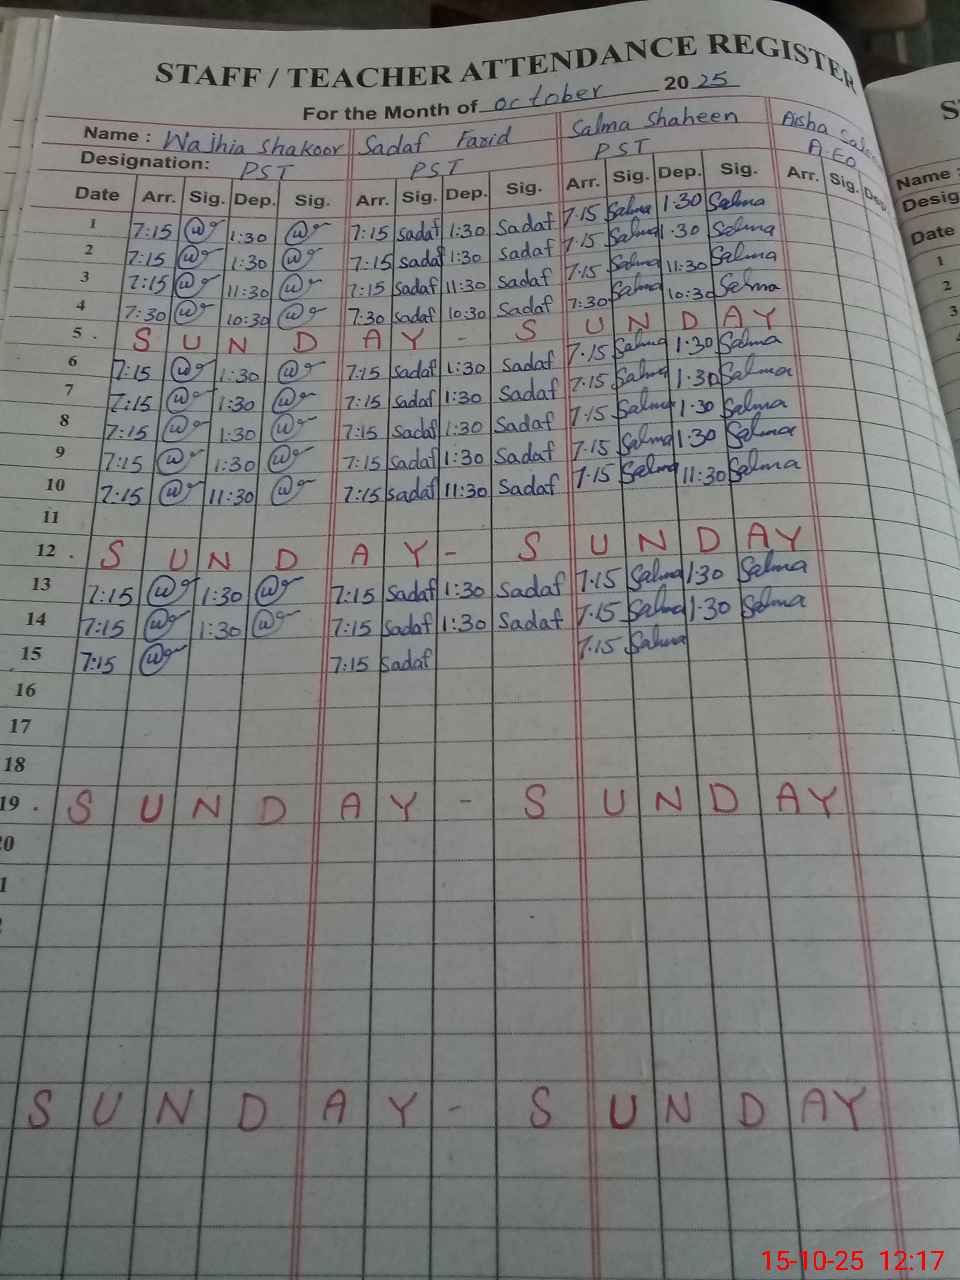 STAFF / TEACHER ATTENDANCE REGISTER
For the Month of october 2025
Name : Wajhia Shakoor Sadaf Farid Salma Shaheen Aisha
Designation: PST PST PST A.EO
Date Arr. Sig. Dep. Sig. Arr. Sig. Dep. Sig. Arr. Sig. Dep. Sig. Arr. Sig. Dep.
1 7:15 1:30 7:15 Sadaf 1:30 Sadaf 7:15 Salma 1:30 Salma
2 7:15 1:30 7:15 Sadaf 1:30 Sadaf 7:15 Salma 1:30 Salma
3 7:15 11:30 7:15 Sadaf 11:30 Sadaf 7:15 Salma 11:30 Salma
4 7:30 10:30 7:30 Sadaf 10:30 Sadaf 7:30 Salma 10:30 Salma
5 . S U N D A Y - S U N D A Y
6 7:15 1:30 7:15 Sadaf 1:30 Sadaf 7:15 Salma 1:30 Salma
7 7:15 1:30 7:15 Sadaf 1:30 Sadaf 7:15 Salma 1:30 Salma
8 7:15 1:30 7:15 Sadaf 1:30 Sadaf 7:15 Salma 1:30 Salma
9 7:15 1:30 7:15 Sadaf 1:30 Sadaf 7:15 Salma 1:30 Salma
10 7:15 11:30 7:15 Sadaf 11:30 Sadaf 7:15 Salma 11:30 Salma
11
12 . S U N D A Y - S U N D A Y
13 7:15 1:30 7:15 Sadaf 1:30 Sadaf 7:15 Salma 1:30 Salma
14 7:15 1:30 7:15 Sadaf 1:30 Sadaf 7:15 Salma 1:30 Salma
15 7:15 7:15 Sadaf 7:15 Salma
16
17
18
19 . S U N D A Y - S U N D A Y
S U N D A Y - S U N D A Y
Name :
Date
1
2
3
15-10-25 12:17